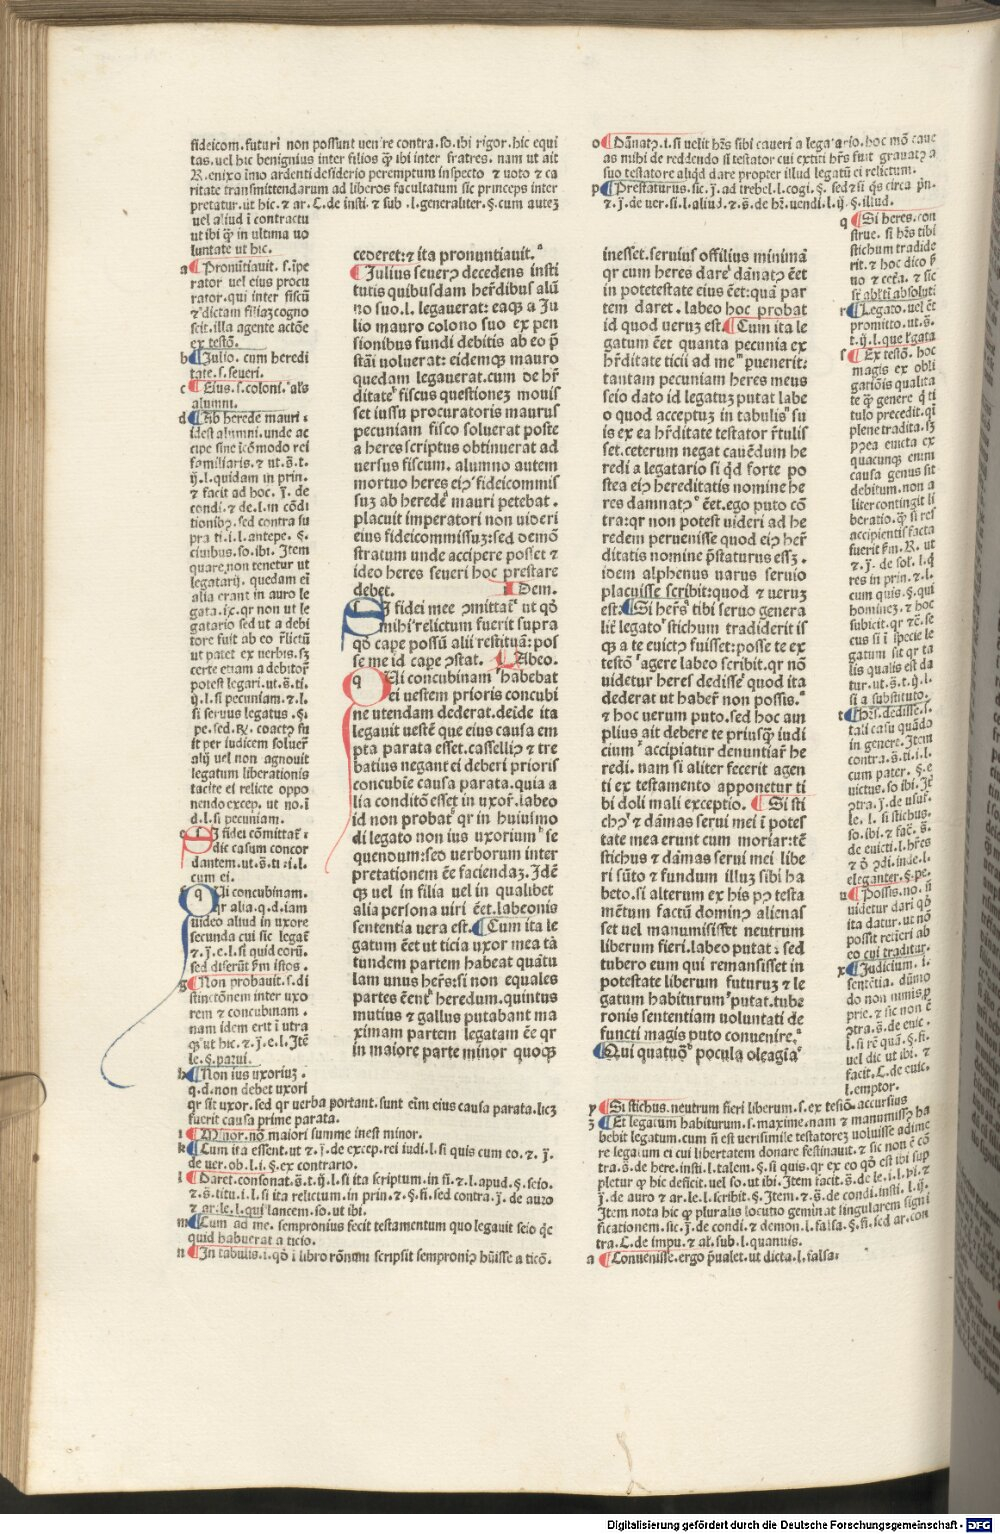 fideicom. futuri non possunt uenire contra. so. ibi rigor. hic equi
tas. uel hic benignius inter filios ꝙ ibi inter fratres. nam ut ait
R. enixo īmo ardenti desiderio peremptum inspecto ⁊ uoto ⁊ ca
ritate transmittendarum ad liberos facultatum sic princeps inter
pretatur. ut hic. ⁊ ar. C. de insti. ⁊ sub. l. generaliter. §. cum autez
uel aliud ī contractu
ut ibi ꝙ in ultima uo
luntate ut hic.
a ¶ Pronūtiauit. s. īpe
rator uel eius procu
rator. qui inter fiscū
⁊ dictam filiaz cogno
scit. illa agente actōe
ex testō.
b ¶ Julio. cum heredi
tate. s. seueri.
c ¶ Eius. s. coloni. al's
alumni.
d ¶ Ab herede mauri.
idest alumni. unde ac
cipe sine īcōmodo rei
familiaris. ⁊ ut. s̄. t.
ij. l. quidam in prin.
⁊ facit ad hoc. j̄. de
condi. ⁊ de. l. in cōdi
tionibꝰ. sed contra su
pra ti. i. l. antepe. §.
ciuibus. so. ibi. Item
quare non tenetur ut
legatarij. quedam eī
alia erant in auro le
gata. ic. qr non ut le
gatario sed ut a debi
tore fuit ab eo r̄lictū
ut patet ex uerbis. sz
certe etiam a debitor̄
potest legari. ut. s̄. ti.
ij. l. si pecuniam. ⁊. l.
si seruus legatus. §.
pe. sed. R̄. coactꝰ fu
it per iudicem soluer̄
alij uel non agnouit
legatum liberationis
tacite ei relicte oppo
nendo excep. ut no. ī
d. l. si pecuniam.
e SI fidei cōmittat̄.
dic casum concor
dantem. ut. s̄. ti. i. l.
cum ei.
f QUi concubinam.
qr alia. q. d. iam
uideo aliud in uxore
secunda cui sic legat̄
⁊. j̄. e. l. si quid eorū.
sed diserūt p̄m istos.
g ¶ Non probauit. s. di
stinctōnem inter uxo
rem ⁊ concubinam.
nam idem erit ī utra
qꝫ ut hic. ⁊. j̄. e. l. Itē
le. §. parui.
h ¶ Non ius uxoriuz.
q. d. non debet uxori
qr sit uxor. sed qr uerba portant. sunt eīm eius causa parata. licz
fuerit causa prime parata.
i ¶ Minor. nō maiori summe inest minor.
k ¶ Cum ita essent. ut ⁊. j̄. de excep. rei iudi. l. si quis cum eo. ⁊. j̄.
de uer. ob. l. i. §. ex contrario.
l ¶ Daret. consonat. s̄. t. ij. l. si ita scriptum. in fi. ⁊. l. apud. §. scio.
⁊. s̄. titu. i. l. si ita relictum. in prin. ⁊. §. fi. sed contra. j̄. de auro
⁊ ar. le. l. qui lancem. so. ut ibi.
m ¶ Cum ad me. sempronius fecit testamentum quo legauit seio q̄e
quid habuerat a ticio.
n ¶ In tabulis. i. qō ī libro rōnum scripsit semproniꝰ hūisse a ticō.
cederet: ⁊ ita pronuntiauit. a
¶ Julius seuerꝰ decedens insti
tutis quibusdam her̄dibus alū
no suo. l. legauerat: eaqꝫ a Ju
lio mauro colono suo ex pen
sionibus fundi debitis ab eo p̄
stāi uoluerat: eidemqꝫ mauro
quedam legauerat. cum de hr̄
ditate fiscus questionez mouis
set iussu procuratoris maurus
pecuniam fisco soluerat poste
a heres scriptus obtinuerat ad
uersus fiscum. alumno autem
mortuo heres eiꝰ fideicommis
suz ab herede mauri petebat.
placuit imperatori non uideri
eius fideicommissuz: sed demō
stratum unde accipere posset ⁊
ideo heres seueri hoc prestare
debet. IDem.
SI fidei mee ꝯmittat̄ ut qō
mihi relictum fuerit supra
qō cape possū alii restituā: pos
se me id cape ꝯstat. LAbeo.
QUi concubinam habebat
ei uestem prioris concubi
ne utendam dederat. deīde ita
legauit uestē que eius causa em
pta parata esset. casselliꝰ ⁊ tre
batius negant ei deberi prioris
concubīe causa parata. quia a
lia conditō esset in uxor̄. labeo
id non probat qr in huiusmo
di legato non ius uxorium se
quendum: sed uerborum inter
pretationem ēe faciendaz. Idē
qꝫ uel in filia uel in qualibet
alia persona uiri ēet. labeonis
sententia uera est. ¶ Cum ita le
gatum ēet ut ticia uxor mea tā
tundem partem habeat quātu
lam unus her̄s: si non equales
partes ēent heredum. quintus
mutius ⁊ gallus putabant ma
ximam partem legatam ēe qr
in maiore parte minor quoqꝫ
inesset. seruius offilius minimā
qr cum heres dare dānatꝰ ēet
in potestate eius ēet: quā par
tem daret. labeo hoc probat
id quod ueruz est. ¶ Cum ita le
gatum ēet quanta pecunia ex
hr̄ditate ticii ad me puenerit:
tantam pecuniam heres meus
seio dato id legatuz putat labe
o quod acceptuz in tabulis su
is ex ea hr̄ditate testator r̄tulis
set. ceterum negat cauēdum he
redi a legatario si qd forte po
stea eiꝰ hereditatis nomine he
res damnatꝰ ēet. ego puto cō
tra: qr non potest uideri ad he
redem peruenisse quod eiꝰ her̄
ditatis nomine p̄staturus essz.
idem alphenus uarus seruio
placuisse scribit: quod ⁊ ueruz
est: ¶ Si her̄s tibi seruo genera
lit̄ legato stichum tradiderit is
qꝫ a te euictꝰ fuisset: posse te ex
testō agere labeo scribit. qr nō
uidetur heres dedisse quod ita
dederat ut haber̄ non possis.
⁊ hoc uerum puto. sed hoc am
plius ait debere te priusqꝫ iudi
cium accipiatur denuntiar̄ he
redi. nam si aliter fecerit agen
ti ex testamento apponetur ti
bi doli mali exceptio. ¶ Si sti
chꝰ ⁊ dāmas serui mei ī potes
tate mea erunt cum moriar: tē
stichus ⁊ dāmas serui mei libe
ri sūto ⁊ fundum illuz sibi ha
beto. si alterum ex his pꝰ testa
mētum factū dominꝰ alienas
set uel manumisisset neutrum
liberum fieri. labeo putat: sed
tubero eum qui remansisset in
potestate liberum futuruz ⁊ le
gatum habiturum putat. tube
ronis sententiam uoluntati de
functi magis puto conuenire. a
¶ Qui quatuoꝝ pocula oleagia
o ¶ Dānatꝰ. i. si uelit hr̄s sibi caueri a legatario. hoc mō caue
as mihi de reddendo si testator cui extiti hr̄s fuit grauatꝰ a
suo testatore aliqd dare propter illud legatū ei relictum.
p ¶ Prestaturus. sic. j̄. ad trebel. l. cogi. §. sed ⁊ si qs circa p̄n.
⁊. j̄. de uer. si. l. aliud. ⁊. s̄. de hr̄. uendi. l. ij. §. illud.
q ¶ Si heres. con
strue. si hr̄s tibi
stichum tradide
rit. ⁊ hoc dico p̄
no ⁊ cetā. ⁊ sic
sr̄ ablti absoluti
r ¶ Legato. uel ēt
promitto. ut. s̄.
t. ij. l. que l̄gata
s ¶ Ex testō. hoc
magis ex obli
gatiōis qualita
te ꝙ genere q̄ ti
tulo precedit. qī
plene tradita. sz
pꝰea euicta ex
quacunqꝫ enim
causa genus sit
debitum. non a
liter contingit li
beratio. ꝙ si res
accipientis facta
fuerit p̄m. R. ut
⁊. j̄. de sol. l. q̄
res in prin. ⁊. l.
cum quis. §. qui
hominez. ⁊ hoc
subicit. qr ⁊c̄. se
cus si ī specie le
gatum sit qr ta
lis qualis est da
tur. ut. s̄. t. ij. l.
si a substituto.
t ¶ Hr̄s. dedisse. s.
tali casu quādo
in genere. Item
contra. s̄. ti. i. l.
cum pater. §. e
uictus. so ibi. It̄
ꝯtra. j̄. de usuf̄.
le. l. si stichus.
so. ibi. ⁊ fac̄. s̄.
de euicti. l. hr̄es
⁊ ō ꝓdi. inde. l.
eleganter. §. pe.
u ¶ Possis. no. ū
uidetur dari qō
ita datur. ut nō
possit retīeri ab
eo cui traditur.
x ¶ Judicium. i.
sentētia. dūmo
do non nimis ꝓ
prie. ⁊ sic non ē
ꝯtra. s̄. de euic.
l. si rē quā. §. fi.
uel dic ut ibi. ⁊
facit. C. de euic.
l. emptor.
y ¶ Si stichus. neutrum fieri liberum. s. ex testō. accursius
z ¶ Et legatum habiturum. s. maxime. nam ⁊ manumissꝰ ha
bebit legatum. cum n̄ est uerisimile testatorez uoluisse adime
re legatum ei cui libertatem donare festinauit. ⁊ sic non ē cō
tra. s̄. de here. insti. l. talem. §. si quis. qr ex eo qō est ibi sup
pletur ꝙ hic deficit. uel so. ut ibi. Item facit. s̄. de le. i. l. pl. ⁊
j̄. de auro ⁊ ar. le. l. scribit. §. Item. ⁊. s̄. de condi. insti. l. ij.
Item nota hic ꝙ pluralis locutio geminat singularem signi
ficationem. sic. j̄. de condi. ⁊ demon. l. falsa. §. fi. sed ar. con
tra. C. de impu. ⁊ al. sub. l. quamuis.
a ¶ Conuenisse. ergo p̄ualet. ut dicta. l. falsa.
Digitalisierung gefördert durch die Deutsche Forschungsgemeinschaft - DFG